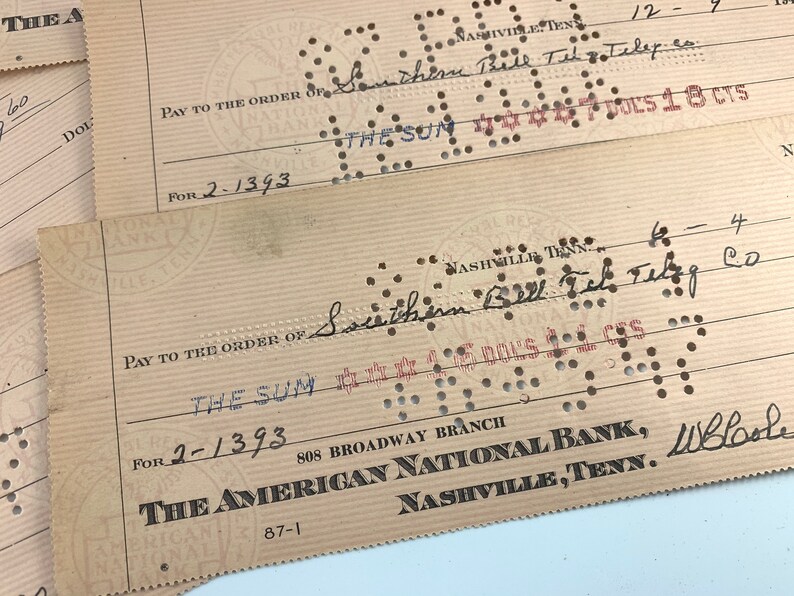 THE AM
NASHVILLE, TENN. 12 - 9 194
PAY TO THE ORDER OF Southern Bell Tel & Teleg Co
THE SUM ☆☆☆☆7 DOLS 18 CTS
FOR 2-1393
60
DOL
N
NASHVILLE, TENN. 6 - 4
PAY TO THE ORDER OF Southern Bell Tel Teleg Co
THE SUM ☆☆☆16 DOLS 11 CTS
FOR 2-1393
808 BROADWAY BRANCH
THE AMERICAN NATIONAL BANK,
NASHVILLE, TENN.
87-1